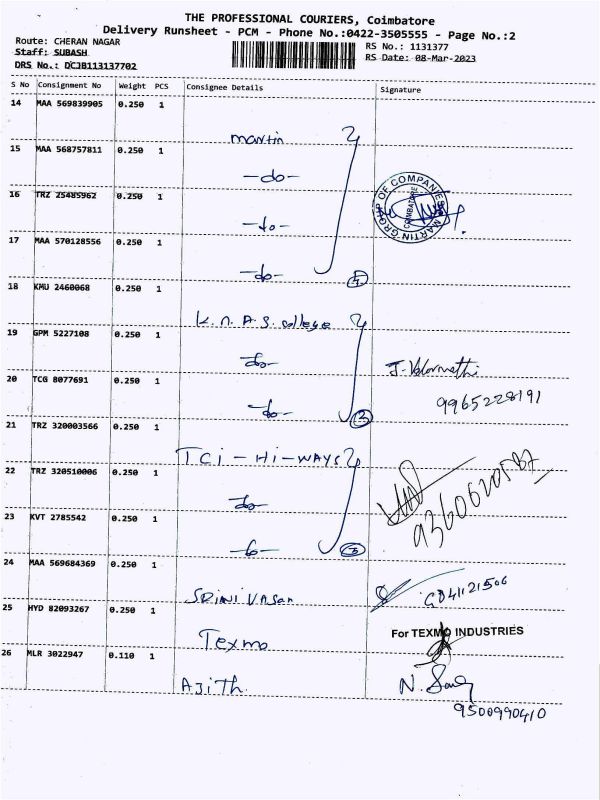 THE PROFESSIONAL COURIERS, Coimbatore
Delivery Runsheet - PCM - Phone No.:0422-3505555 - Page No.:2
Route: CHERAN NAGAR
RS No.: 1131377
Staff: SUBASH
RS Date: 08-Mar-2023
DRS No.: DCJB113137702
S No Consignment No Weight PCS Consignee Details Signature
14 MAA 569839905 0.250 1
martin
15 MAA 568757811 0.250 1
-do-
16 TRZ 25485962 0.250 1
-do-
MARTIN GROUP OF COMPANIES
COIMBATORE
17 MAA 570128556 0.250 1
-do- 4
18 KMU 2460068 0.250 1
K.N.A.S. college
19 GPM 5227108 0.250 1
-do-
20 TCG 8077691 0.250 1
-do- 3
9965228191
21 TRZ 320003566 0.250 1
TCi - Hi - WAYS
22 TRZ 320510006 0.250 1
-do-
23 KVT 2785542 0.250 1
24 MAA 569684369 0.250 1
SRINIVASAN
25 HYD 82093267 0.250 1
Texmo
For TEXMO INDUSTRIES
26 MLR 3022947 0.110 1
Ajith
9500990410